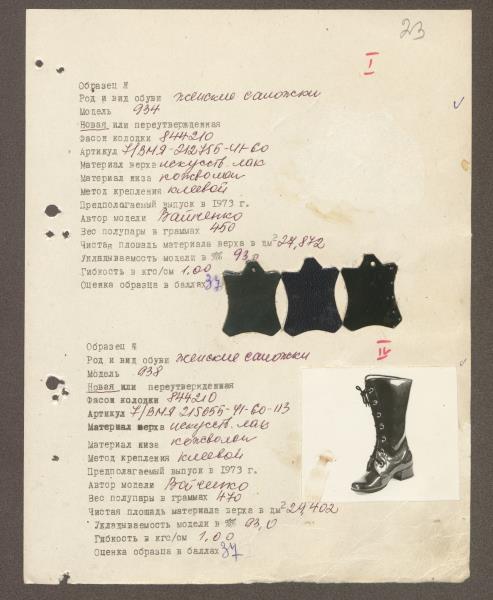 23
I
Образец №
Род и вид обуви женские сапожки
Модель 934
Новая или переутвержденная
Фасон колодки 844210
Артикул 7/ВМЯ-212755-41-60
Материал верха искусств. лак
Материал низа кожволон
Метод крепления клеевой
Предполагаемый выпуск в 1973 г.
Автор модели Вайченко
Вес полупары в граммах 450
Чистая площадь материала верха в дм² 27,872
Укладываемость модели в 93,0
Гибкость в кгс/см 1,00
Оценка образца в баллах 37
IV
Образец №
Род и вид обуви женские сапожки
Модель 938
Новая или переутвержденная
Фасон колодки 844210
Артикул 7/ВМЯ-215655-41-60-113
Материал верха искусств. лак
Материал низа кожволон
Метод крепления клеевой
Предполагаемый выпуск в 1973 г.
Автор модели Вайченко
Вес полупары в граммах 470
Чистая площадь материала верха в дм² 29,402
Укладываемость модели в 93,0
Гибкость в кгс/см 1,00
Оценка образца в баллах 37